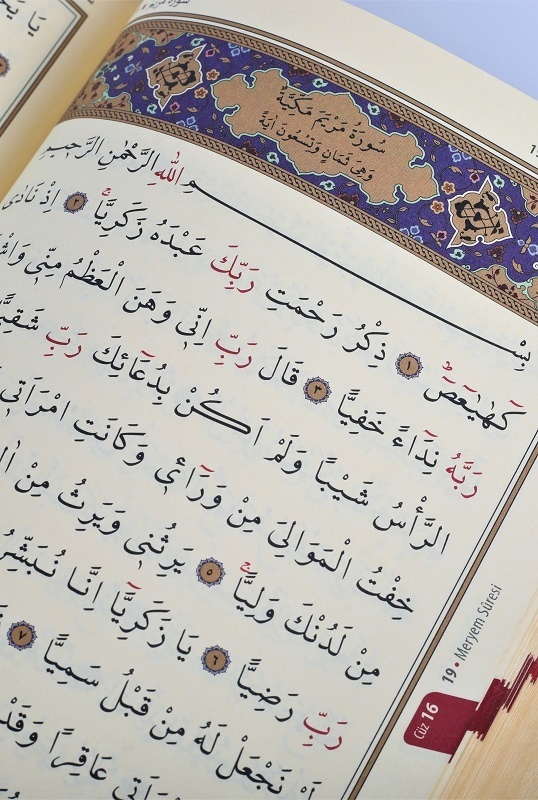 سُورَةُ مَرْيَمَ مَكِّيَّةٌ
وَهِيَ ثَمَانٍ وَتِسْعُونَ اٰيَةً
بِسْمِ اللّٰهِ الرَّحْمٰنِ الرَّحٖيمِ
كٓهٰيٰعٓصٓ ﴿١﴾ ذِكْرُ رَحْمَتِ رَبِّكَ عَبْدَهُ زَكَرِيَّا ﴿٢﴾ اِذْ نَادٰى
رَبَّهُ نِدَٓاءً خَفِيًّا ﴿٣﴾ قَالَ رَبِّ اِنّٖى وَهَنَ الْعَظْمُ مِنّٖى
الرَّأْسُ شَيْبًا وَلَمْ اَكُنْ بِدُعَٓائِكَ رَبِّ شَقِيًّا
خِفْتُ الْمَوَالِىَ مِنْ وَرَٓاءٖى وَكَانَتِ امْرَاَتٖى
مِنْ لَدُنْكَ وَلِيًّا ﴿٥﴾ يَرِثُنٖى وَيَرِثُ مِنْ
رَبِّ رَضِيًّا ﴿٦﴾ يَا زَكَرِيَّٓا اِنَّا نُبَشِّرُ
نَجْعَلْ لَهُ مِنْ قَبْلُ سَمِيًّا ﴿٧﴾
عَاقِرًا وَقَدْ
19 • Meryem Sûresi
Cüz 16